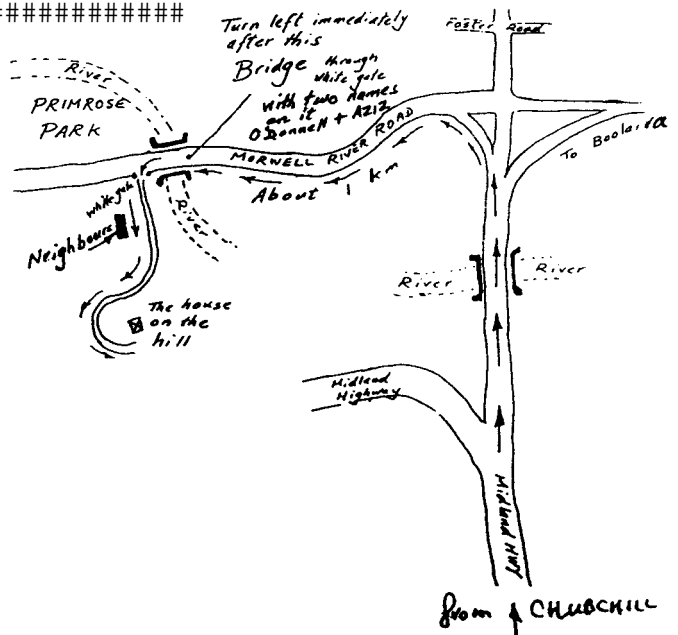 ############
Turn left immediately
after this
Bridge through
white gate
with two names
on it
O'Donnell + AZIZ
Foster Road
River
PRIMROSE
PARK
MORWELL RIVER ROAD
To Boolarra
About 1 km
white gate
River
Neighbours
River
River
The house
on the
hill
Midland
Highway
Midland HWY
from CHURCHILL